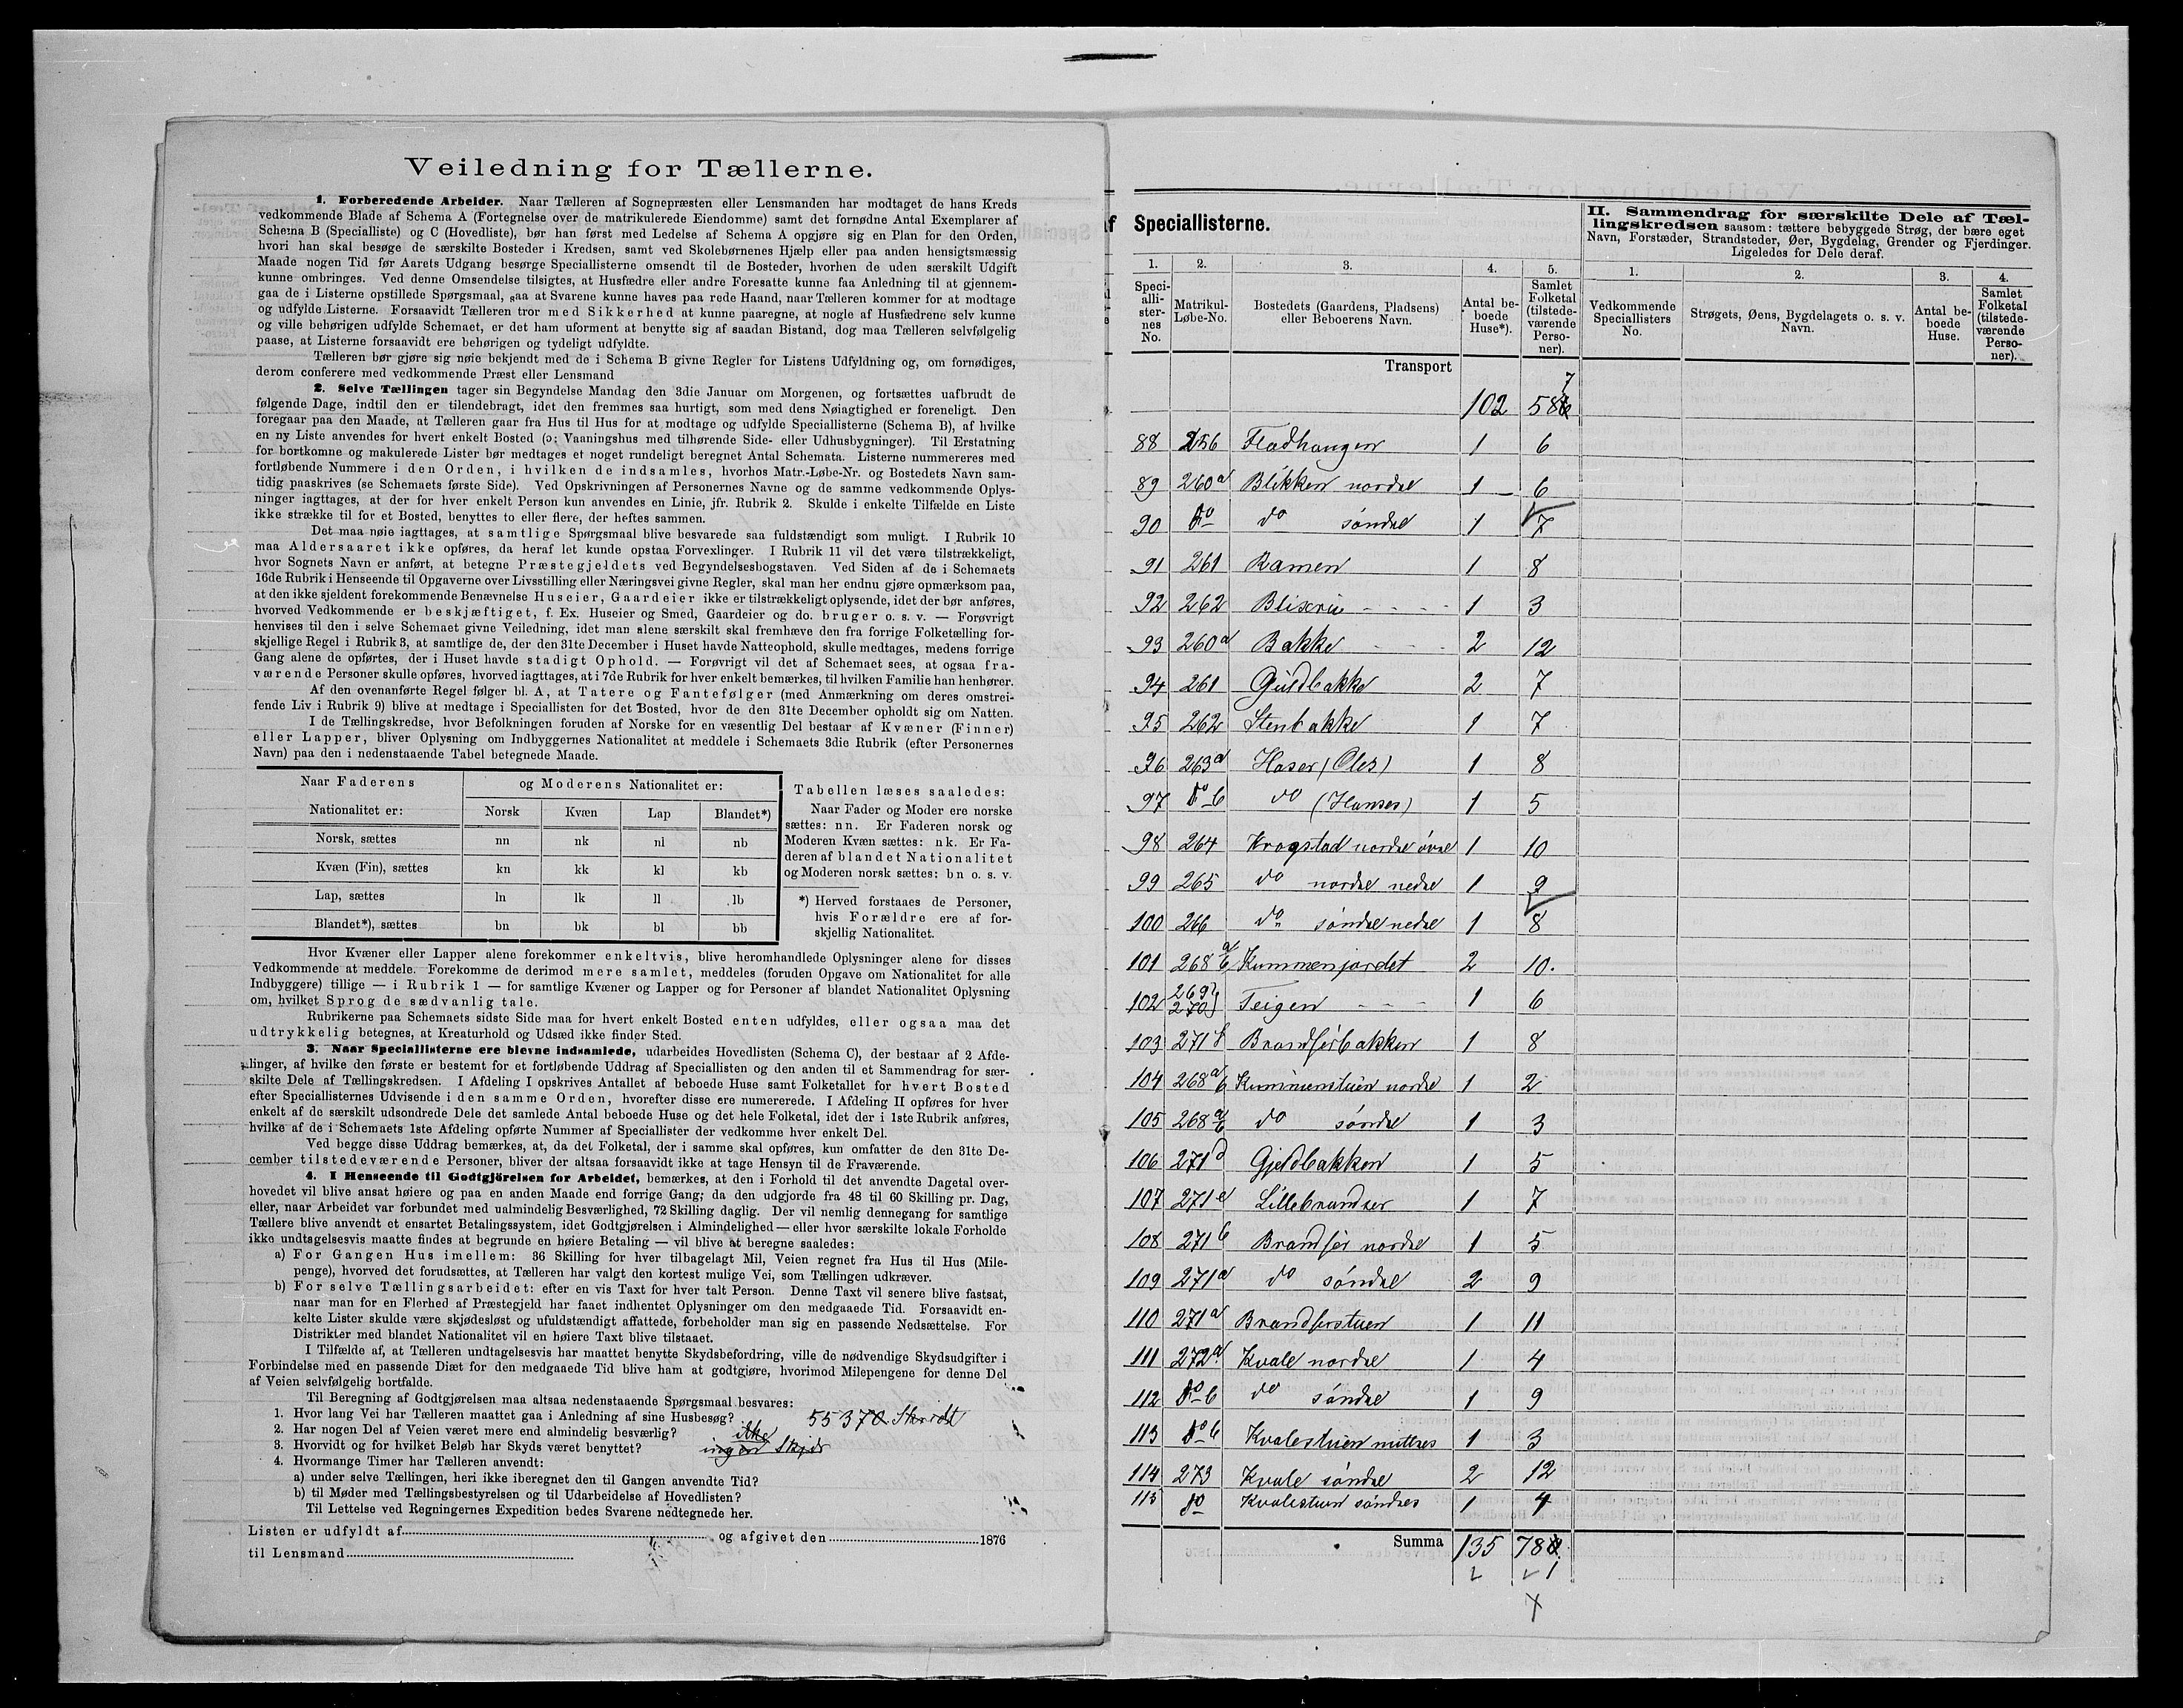 Veiledning for Tællerne.
1. Forberedende Arbeider. Naar Tælleren af Sognepræsten eller Lensmanden har modtaget de hans Kreds
vedkommende Blade af Schema A (Fortegnelse over de matrikulerede Eiendomme) samt det fornødne Antal Exemplarer af
Schema B (Specialliste) og C (Hovedliste), bør han først med Ledelse af Schema A opgjøre sig en Plan for den Orden,
hvori han skal besøge de særskilte Bosteder i Kredsen, samt ved Skolebørnenes Hjælp eller paa anden hensigtsmæssig
Maade nogen Tid før Aarets Udgang besørge Speciallisterne omsendt til de Bosteder, hvorhen de uden særskilt Udgift
kunne ombringes. Ved denne Omsendelse tilsigtes, at Husfædre eller andre Foresatte kunne faa Anledning til at gjennem-
gaa de i Listerne opstillede Spørgsmaal, saa at Svarene kunne haves paa rede Haand, naar Tælleren kommer for at modtage
og udfylde Listerne. Forsaavidt Tælleren tror med Sikkerhed at kunne paaregne, at nogle af Husfædrene selv kunne
og ville behørigen udfylde Schemaet, er det ham uforment at benytte sig af saadan Bistand, dog maa Tælleren selvfølgelig
paase, at Listerne forsaavidt ere behørigen og tydeligt udfyldte.
Tælleren bør gjøre sig nøie bekjendt med de i Schema B givne Regler for Listens Udfyldning og, om fornødiges,
derom conferere med vedkommende Præst eller Lensmand
2. Selve Tællingen tager sin Begyndelse Mandag den 3die Januar om Morgenen, og fortsættes uafbrudt de
følgende Dage, indtil den er tilendebragt, idet den fremmes saa hurtigt, som med dens Nøiagtighed er foreneligt. Den
foregaar paa den Maade, at Tælleren gaar fra Hus til Hus for at modtage og udfylde Speciallisterne (Schema B), af hvilke
en ny Liste anvendes for hvert enkelt Bosted (ɔ: Vaaningshus med tilhørende Side- eller Udhusbygninger). Til Erstatning
for bortkomne og makulerede Lister bør medtages et noget rundeligt beregnet Antal Schemata. Listerne nummereres med
fortløbende Nummere i den Orden, i hvilken de indsamles, hvorhos Matr.-Løbe-Nr. og Bostedets Navn sam-
tidig paaskrives (se Schemaets første Side). Ved Opskrivningen af Personernes Navne og de samme vedkommende Oplys-
ninger iagttages, at der for hver enkelt Person kun anvendes en Linie, jfr. Rubrik 2. Skulde i enkelte Tilfælde en Liste
ikke strække til for et Bosted, benyttes to eller flere, der heftes sammen.
Det maa nøie iagttages, at samtlige Spørgsmaal blive besvarede saa fuldstændigt som muligt. I Rubrik 10
maa Aldersaaret ikke opføres, da heraf let kunde opstaa Forvexlinger. I Rubrik 11 vil det være tilstrækkeligt,
hvor Sognets Navn er anført, at betegne Præstegjeldets ved Begyndelsesbogstaven. Ved Siden af de i Schemaets
16de Rubrik i Henseende til Opgaverne over Livsstilling eller Næringsvei givne Regler, skal man her endnu gjøre opmærksom paa,
at den ikke sjeldent forekommende Benævnelse Huseier, Gaardeier ikke er tilstrækkeligt oplysende, idet der bør anføres,
hvorved Vedkommende er beskjæftiget, f. Ex. Huseier og Smed, Gaardeier og do. bruger o. s. v. — Forøvrigt
henvises til den i selve Schemaet givne Veiledning, idet man alene særskilt skal fremhæve den fra forrige Folketælling for-
skjellige Regel i Rubrik 3, at samtlige de, der den 31te December i Huset havde Natteophold, skulle medtages, medens forrige
Gang alene de opførtes, der i Huset havde stadigt Ophold. — Forøvrigt vil det af Schemaet sees, at ogsaa fra-
værende Personer skulle opføres, hvorved iagttages, at i 7de Rubrik for hver enkelt bemærkes, til hvilken Familie han henhører.
Af den ovenanførte Regel følger bl. A, at Tatere og Fantefølger (med Anmærkning om deres omstrei-
fende Liv i Rubrik 9) blive at medtage i Speciallisten for det Bosted, hvor de den 31te December opholdt sig om Natten.
I de Tællingskredse, hvor Befolkningen foruden af Norske for en væsentlig Del bestaar af Kvæner (Finner)
eller Lapper, bliver Oplysning om Indbyggernes Nationalitet at meddele i Schemaets 3die Rubrik (efter Personernes
Navn) paa den i nedenstaaende Tabel betegnede Maade.
Naar Faderens og Moderens Nationalitet er:
Nationalitet er: Norsk Kvæn Lap Blandet*)
Norsk, sættes nn nk nl nb
Kvæn (Fin), sættes kn kk kl kb
Lap, sættes ln lk ll lb
Blandet*), sættes bn bk bl bb
Tabellen læses saaledes:
Naar Fader og Moder ere norske
sættes: nn. Er Faderen norsk og
Moderen Kvæn sættes: nk. Er Fa-
deren af blandet Nationalitet
og Moderen norsk sættes: bn o. s. v.
*) Herved forstaaes de Personer,
hvis Forældre ere af for-
skjellig Nationalitet.
Hvor Kvæner eller Lapper alene forekommer enkeltvis, blive heromhandlede Oplysninger alene for disses
Vedkommende at meddele. Forekomme de derimod mere samlet, meddeles (foruden Opgave om Nationalitet for alle
Indbyggere) tillige — i Rubrik 1 — for samtlige Kvæner og Lapper og for Personer af blandet Nationalitet Oplysning
om, hvilket Sprog de sædvanlig tale.
Rubrikerne paa Schemaets sidste Side maa for hvert enkelt Bosted enten udfyldes, eller ogsaa maa det
udtrykkelig betegnes, at Kreaturhold og Udsæd ikke finder Sted.
3. Naar Speciallisterne ere blevne indsamlede, udarbeides Hovedlisten (Schema C), der bestaar af 2 Afde-
linger, af hvilke den første er bestemt for et fortløbende Uddrag af Speciallisten og den anden til et Sammendrag for sær-
skilte Dele af Tællingskredsen. I Afdeling I opskrives Antallet af beboede Huse samt Folketallet for hvert Bosted
efter Speciallisternes Udvisende i den samme Orden, hvorefter disse ere numererede. I Afdeling II opføres for hver
enkelt af de særskilt udsondrede Dele det samlede Antal beboede Huse og det hele Folketal, idet der i 1ste Rubrik anføres,
hvilke af de i Schemaets 1ste Afdeling opførte Nummer af Speciallister der vedkomme hver enkelt Del.
Ved begge disse Uddrag bemærkes, at, da det Folketal, der i samme skal opføres, kun omfatter de den 31te De-
cember tilstedeværende Personer, bliver der altsaa forsaavidt ikke at tage Hensyn til de Fraværende.
4. I Henseende til Godtgjörelsen for Arbeidet, bemærkes, at den i Forhold til det anvendte Dagetal over-
hovedet vil blive ansat høiere og paa en anden Maade end forrige Gang; da den udgjorde fra 48 til 60 Skilling pr. Dag,
eller, naar Arbeidet var forbundet med ualmindelig Besværlighed, 72 Skilling daglig. Der vil nemlig dennegang for samtlige
Tællere blive anvendt et ensartet Betalingssystem, idet Godtgjørelsen i Almindelighed — eller hvor særskilte lokale Forholde
ikke undtagelsesvis maatte findes at begrunde en høiere Betaling — vil blive at beregne saaledes:
a) For Gangen Hus imellem: 36 Skilling for hver tilbagelagt Mil, Veien regnet fra Hus til Hus (Mile-
penge), hvorved det forudsættes, at Tælleren har valgt den kortest mulige Vei, som Tællingen udkræver.
b) For selve Tællingsarbeidet: efter en vis Taxt for hver talt Person. Denne Taxt vil senere blive fastsat,
naar man for en Flerhed af Præstegjeld har faaet indhentet Oplysninger om den medgaaede Tid. Forsaavidt en-
kelte Lister skulde være skjødesløst og ufuldstændigt affattede, forbeholder man sig en passende Nedsættelse. For
Distrikter med blandet Nationalitet vil en høiere Taxt blive tilstaaet.
I Tilfælde af, at Tælleren undtagelsesvis har maattet benytte Skydsbefordring, ville de nødvendige Skydsudgifter i
Forbindelse med en passende Diæt for den medgaaede Tid blive ham at godtgjøre, hvorimod Milepengene for denne Del
af Veien selvfølgelig bortfalde.
Til Beregning af Godtgjørelsen maa altsaa nedenstaaende Spørgsmaal besvares:
1. Hvor lang Vei har Tælleren maattet gaa i Anledning af sine Husbesøg? 55370 Skridt
2. Har nogen Del af Veien været mere end almindelig besværlig? ikke
3. Hvorvidt og for hvilket Beløb har Skyds været benyttet? ingen Skyds
4. Hvormange Timer har Tælleren anvendt:
a) under selve Tællingen, heri ikke iberegnet den til Gangen anvendte Tid?
b) til Møder med Tællingsbestyrelsen og til Udarbeidelse af Hovedlisten?
Til Lettelse ved Regningernes Expedition bedes Svarene nedtegnede her.
Listen er udfyldt af og afgivet den 1876
til Lensmand
af Speciallisterne.
1. 2. 3. 4. 5.
Speci-
alli-
ster-
nes
No.
Matrikul-
Løbe-No.
Bostedets (Gaardens, Pladsens)
eller Beboerens Navn.
Antal be-
boede
Huse*).
Samlet
Folketal
(tilstede-
værende
Perso-
ner).
II. Sammendrag for særskilte Dele af Tæl-
lingskredsen saasom: tættere bebyggede Strøg, der bære eget
Navn, Forstæder, Strandsteder, Øer, Bygdelag, Grender og Fjerdinger.
Ligeledes for Dele deraf.
1. 2. 3. 4.
Vedkommende
Speciallisters
No.
Strøgets, Øens, Bygdelagets o. s. v.
Navn.
Antal be-
boede
Huse.
Samlet
Folketal
(tilstede-
værende
Perso-
ner).
Transport
7
102 586
88 256 Fladhaugen 1 6
89 260a Blikken nordre 1 6
90 do do søndre 1 7
91 261 Ramen 1 8
92 262 1 3
93 260a Bakke 2 12
94 261 Guldbakke 2 7
95 262 Stenbakke 1 7
96 263a Haser (Oles) 1 8
97 do b do (Hanses) 1 5
98 264 Krogstad nordre øvre 1 10
99 265 do nordre nedre 1 9
100 266 do søndre nedre 1 8
101 268 a/b Kummenjordet 2 10.
102 269 270 Teigen 1 6
103 271f Brandserbakken 1 8
104 268 a/b Kummenstuen nordre 1 2
105 268 a/b do søndre 1 3
106 271d Gjeldbakken 1 5
107 271e Lillebrandser 1 7
108 271b Brandser nordre 1 5
109 271a do søndre 2 9
110 271a Brandserstuen 1 11
111 272a Kvale nordre 1 4
112 do b do søndre 1 9
113 do b Kvalestuen mittres 1 3
114 273 Kvale søndre 2 12
115 do Kvalestuen søndres 1 4
Summa 135 780
1